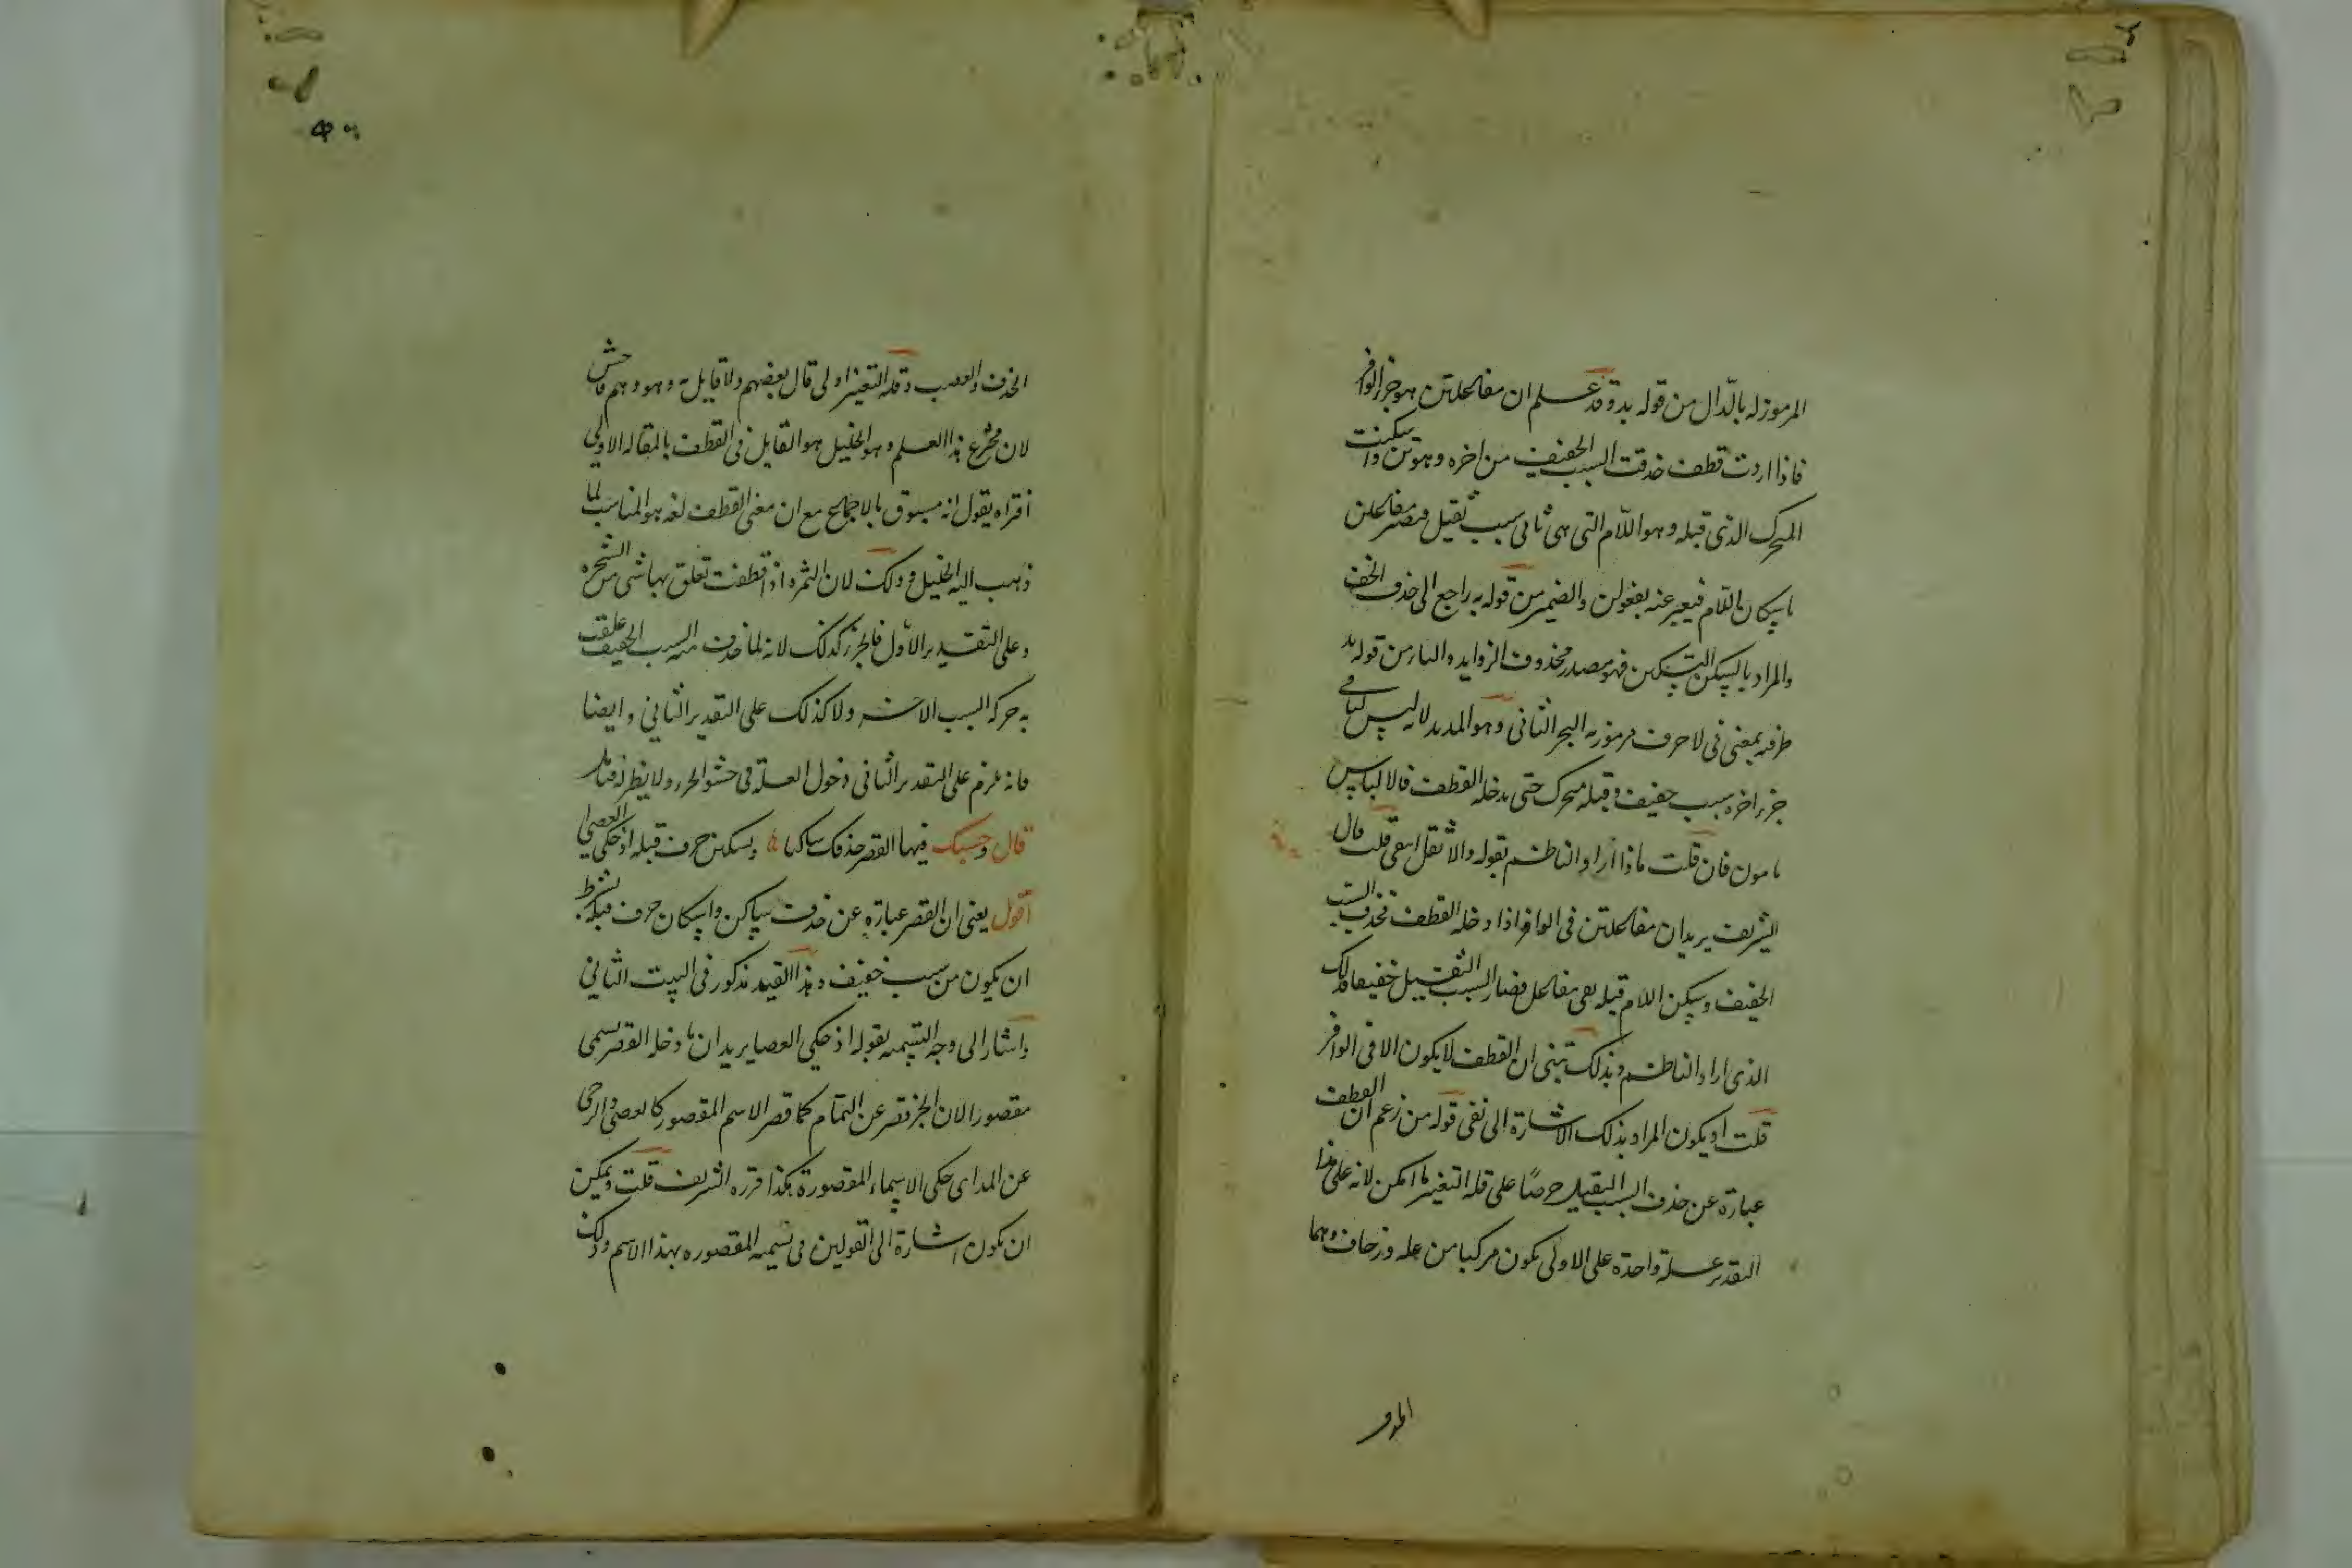 المرموز له بالدال من قوله بد وقد علم ان مفاعلتن هو جزء الوافر
فاذا اردت قطف حذفت السبب الخفيف من اخره وهو تن واسكنت
المتحرك الذى قبله وهو اللام التى هى ثانى سبب ثقيل فيصير مفاعلن
باسكان اللام فيعبر عنه بفعولن والضمير من قوله به راجع الى حذف الخف
والمراد بالسكن التسكين فهو مصدر محذوف الزوايد والبا من قوله بد
ظرفيه بمعنى فى لا حرف مرموز به البحر الثانى وهو المديد لانه ليس لنا فى
جزء اخره سبب خفيف وقبله متحرك حتى يدخله القطف فالالباس
مامون فان قلت ماذا اراد الناظم بقوله والاثقل ابقى قلت قال
الشريف يريد ان مفاعلتن فى الوافر اذا دخله القطف فحذف السبب
الخفيف وسكن اللام قبله بقى مفاعل فصار السبب الثقيل خفيفا فذلك
الذى اراد الناظم وبذلك تبنى ان القطف لا يكون الا فى الوافر
قلت او يكون المراد بذلك الاشارة الى نفى قول من زعم ان القطف
عبارة عن حذف السبب الثقيل حرصا على قله التغير ما امكن لانه على هذا
التقدير علة واحدة على الاولى يكون مركبا من عله وزحاف وهما
الحذف والعصب وقلة التغير اولى قال بعضهم ولا قايل به وهو وهم فاحش
لان مخترع هذا العلم وهو الخليل هو القايل فى القطف بالمقاله الاولى
افتراه يقول انه مسبوق بالاجماع مع ان معنى القطف لغه هو المناسب لما
ذهب اليه الخليل وذلك لان الثمره اذا قطفت تعلق بها شى من الشجره
وعلى التقدير الاول فالجزء كذلك لانه لما حذف منه السبب الخفيف علقت
به حركه السبب الاخر ولا كذلك على التقدير الثانى وايضا
فانه يلزم على التقدير الثانى دخول العلة فى حشو الجزء ولا نظر له فتامل
قال وحسبك فيها القصر حذفك ساكنا وتسكين حرف قبله اذ حكى العصا
اقول يعنى ان القصر عبارة عن حذف ساكن واسكان حرف قبله بشرط
ان يكون من سبب خفيف وهذا القيد مذكور فى البيت الثانى
واشار الى وجه التسميه بقوله اذ حكى العصا يريد ان ما دخله القصر يسمى
مقصورا لان الجزء قصر عن التمام كما قصر الاسم المقصور كالعصى والرحى
عن المد اى حكى الاسماء المقصورة هكذا قرره الشريف قلت ويمكن
ان يكون اشارة الى القولين فى تسميه المقصوره بهذا الاسم وذلك